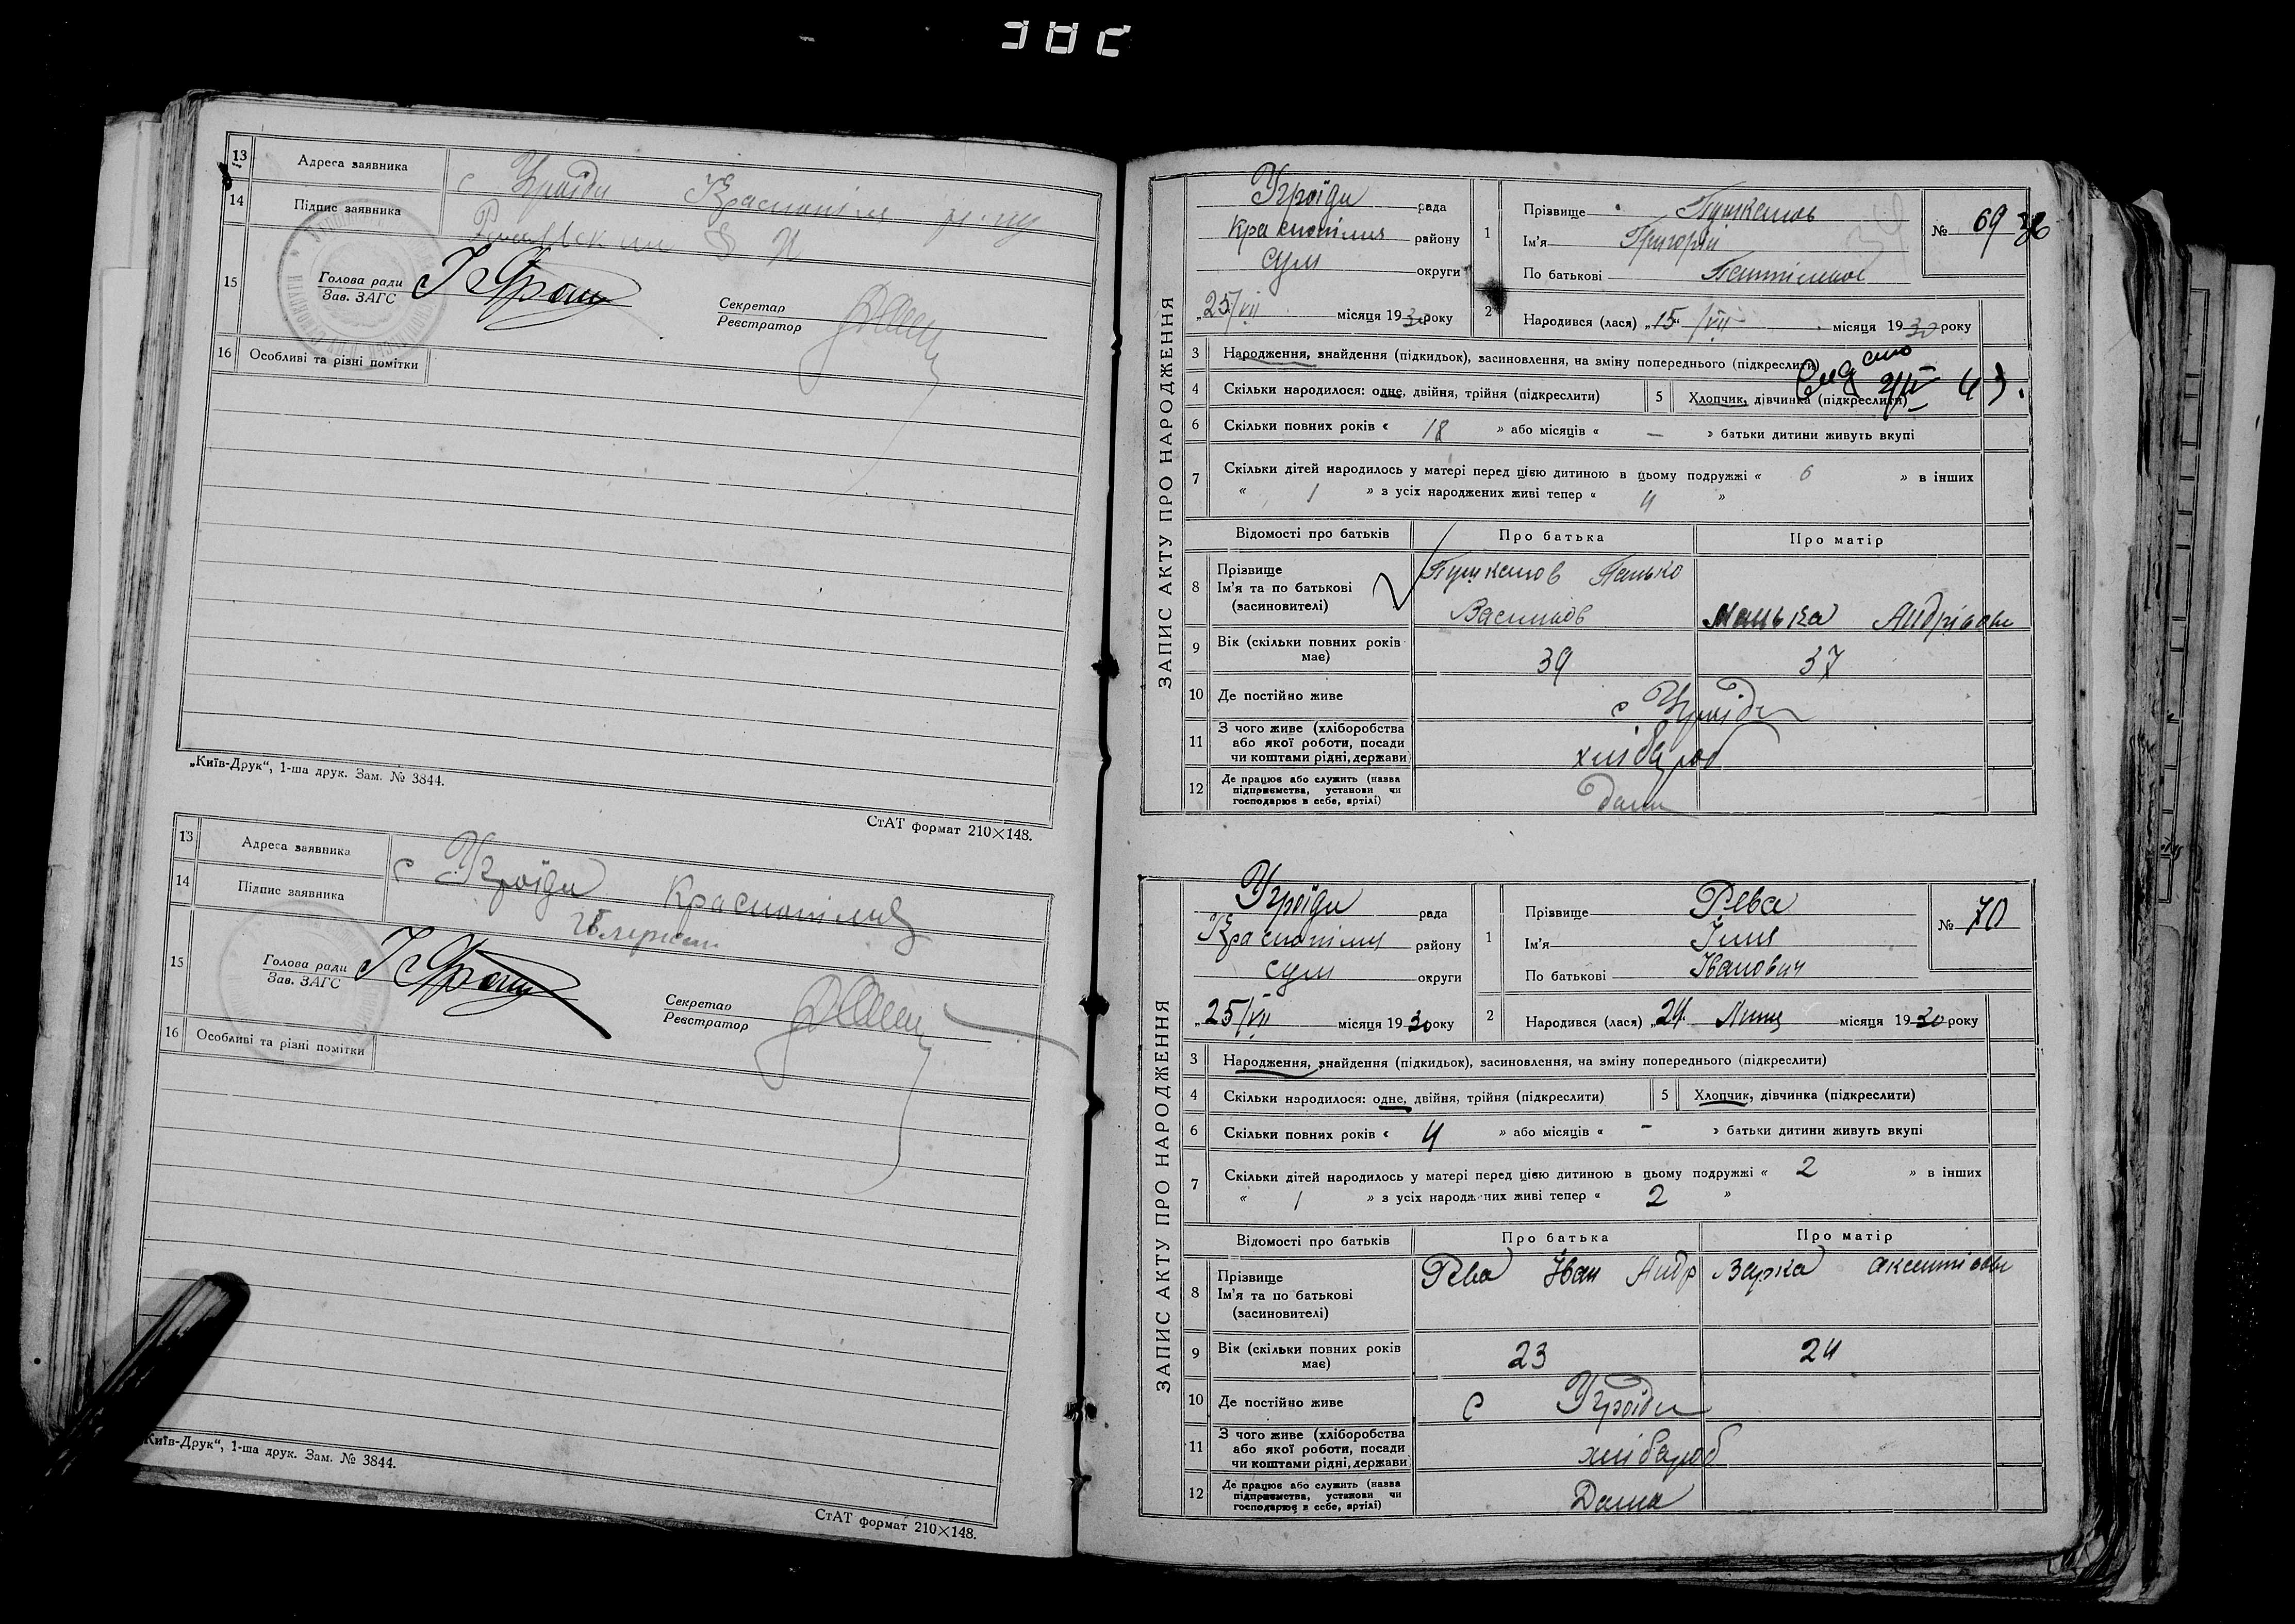 13 Адреса заявника с Угроїди Краснопілля р-ну
14 Підпис заявника
15 Голова ради
Зав. ЗАГС
Секретар
Реєстратор
16 Особливі та різні помітки
„Київ-Друк“, 1-ша друк. Зам. № 3844.
СтАТ формат 210×148.
13 Адреса заявника с Угроїди Краснопілля
14 Підпис заявника
15 Голова ради
Зав. ЗАГС
Секретар
Реєстратор
16 Особливі та різні помітки
Київ-Друк“, 1-ша друк. Зам. № 3844.
СтАТ формат 210×148.
ЗАПИС АКТУ ПРО НАРОДЖЕННЯ
Угроїди рада
Краснопілля району
Сум округи
„25/VII місяця 1930 року
1 Прізвище Пушкалов
Ім'я Григорій
По батькові
№ 69
2 Народився (лася) „15“ /VII місяця 1930 року
3 Народження, знайдення (підкидьок), засиновлення, на зміну попереднього (підкреслити)
4 Скільки народилося: одне, двійня, трійня (підкреслити) 5 Хлопчик, дівчинка (підкреслити)
6 Скільки повних років « 18 » або місяців « — » батьки дитини живуть вкупі
7 Скільки дітей народилось у матері перед цією дитиною в цьому подружжі « 6 » в інших
« 1 » з усіх народжених живі тепер « 4 »
Відомості про батьків Про батька Про матір
8 Прізвище
Ім'я та по батькові
(засиновителі)
Пушкалов Панько
Васильов
Андріївн
9 Вік (скільки повних років
має) 39 37
10 Де постійно живе с Угроїди
11 З чого живе (хліборобства
або якої роботи, посади
чи коштами рідні, держави) хлібароб
12 Де працює або служить (назва
підприємства, установи чи
господарює в себе, артілі)
дома
ЗАПИС АКТУ ПРО НАРОДЖЕННЯ
Угроїди рада
Краснопілля району
Сум округи
„25/VII місяця 1930 року
1 Прізвище Рева
Ім'я Ілля
По батькові Іванович
№ 70
2 Народився (лася) „24 Липця місяця 1930 року
3 Народження, знайдення (підкидьок), засиновлення, на зміну попереднього (підкреслити)
4 Скільки народилося: одне, двійня, трійня (підкреслити) 5 Хлопчик, дівчинка (підкреслити)
6 Скільки повних років « 4 » або місяців « - » батьки дитини живуть вкупі
7 Скільки дітей народилось у матері перед цією дитиною в цьому подружжі « 2 » в інших
« 1 » з усіх народжених живі тепер « 2 »
Відомості про батьків Про батька Про матір
8 Прізвище
Ім'я та по батькові
(засиновителі)
Рева Іван Андр Варка
9 Вік (скільки повних років
має) 23 24
10 Де постійно живе с Угроїди
11 З чого живе (хліборобства
або якої роботи, посади
чи коштами рідні, держави) хлібароб
12 Де працює або служить (назва
підприємства, установи чи
господарює в себе, артілі)
Дома